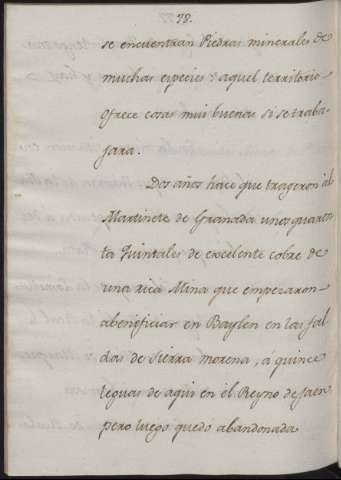 78.
se encuentran Piedras minerales de
muchas especies: aquel territorio
ofrece cosas mui buenas si se traba-
jara.
Dos años hace que trageron al
Martinete de Granada unos quaren-
ta Quintales de excelente cobre de
una rica Mina que empezaron
abeneficiar en Baylen en las fal-
das de Sierra morena, á quince
leguas de aqui en el Reyno de Jaen
pero luego quedó abandonada